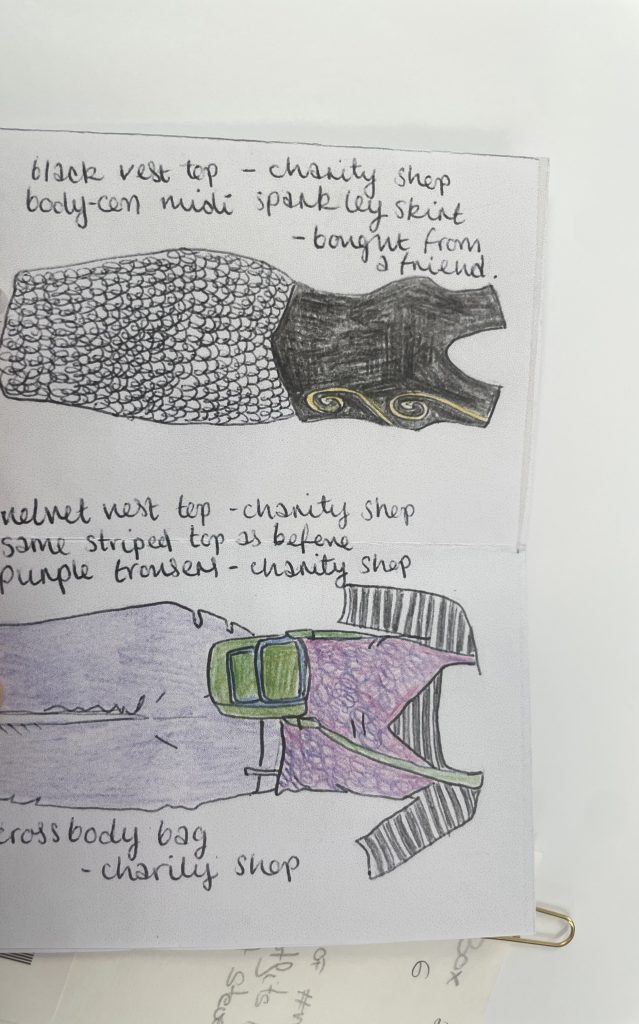 black vest top - charity shop
body-con midi sparkley skirt
- bought from
a friend.
velvet vest top - charity shop
same striped top as before
purple trousers - charity shop
crossbody bag
- charity shop
Box
6
OF